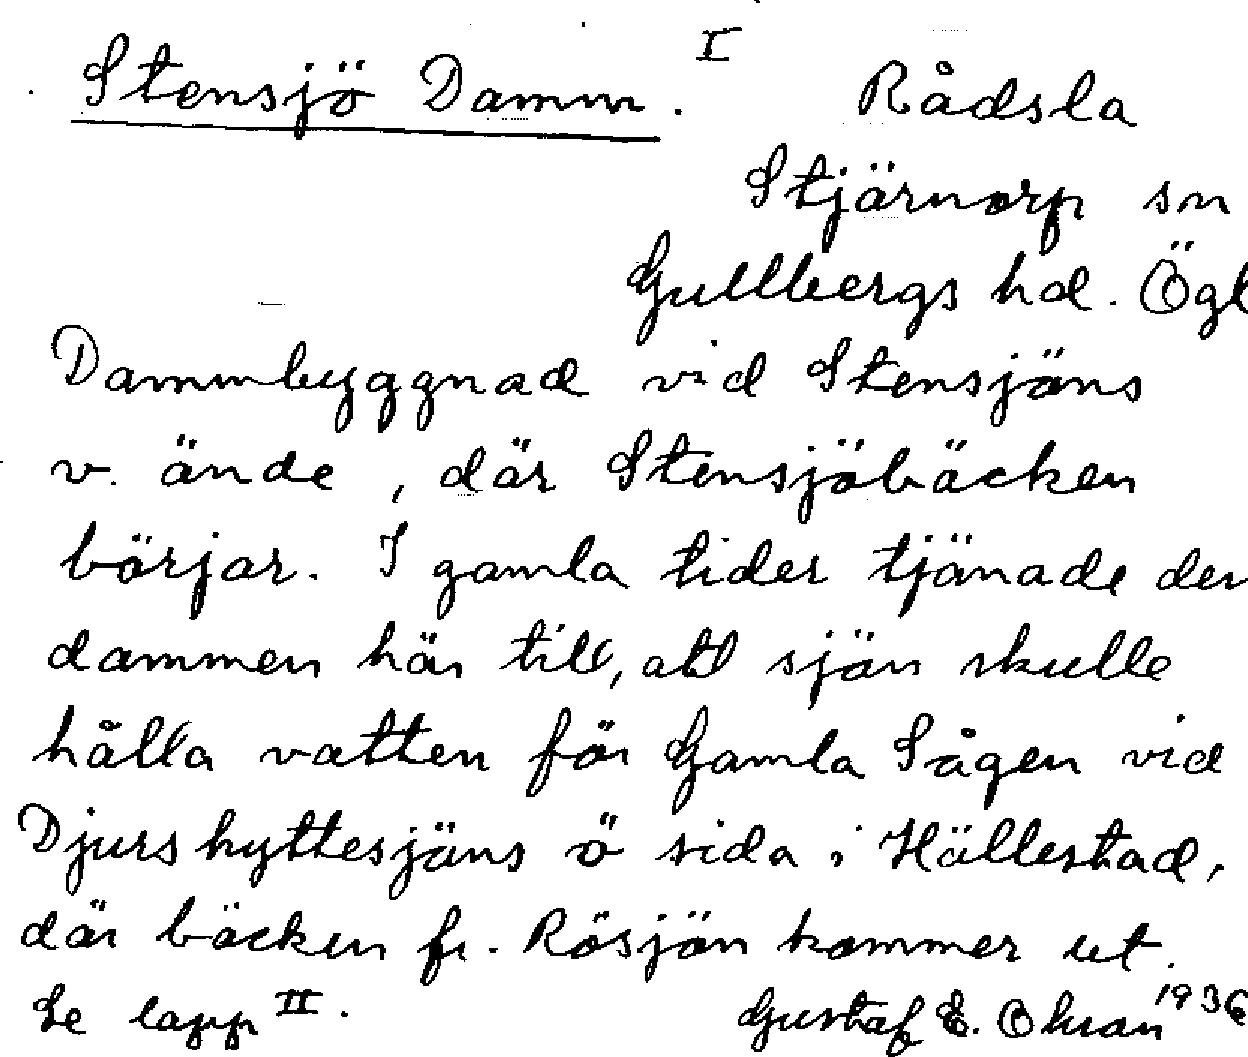 Stensjö Damm. I Rådsla
Stjärnorp sn
Gullbergs hd. Ögl
Dammbyggnad vid Stensjöns
v. ände, där Stensjöbäcken
börjar. I gamla tider tjänade den
dammen här till, att sjön skulle
hålla vatten för Gamla Sågen vid
Djurshyttesjöns ö sida i Hällestad,
där bäcken fr. Rösjön kommer ut.
Se lapp II. Gustaf E. 1936